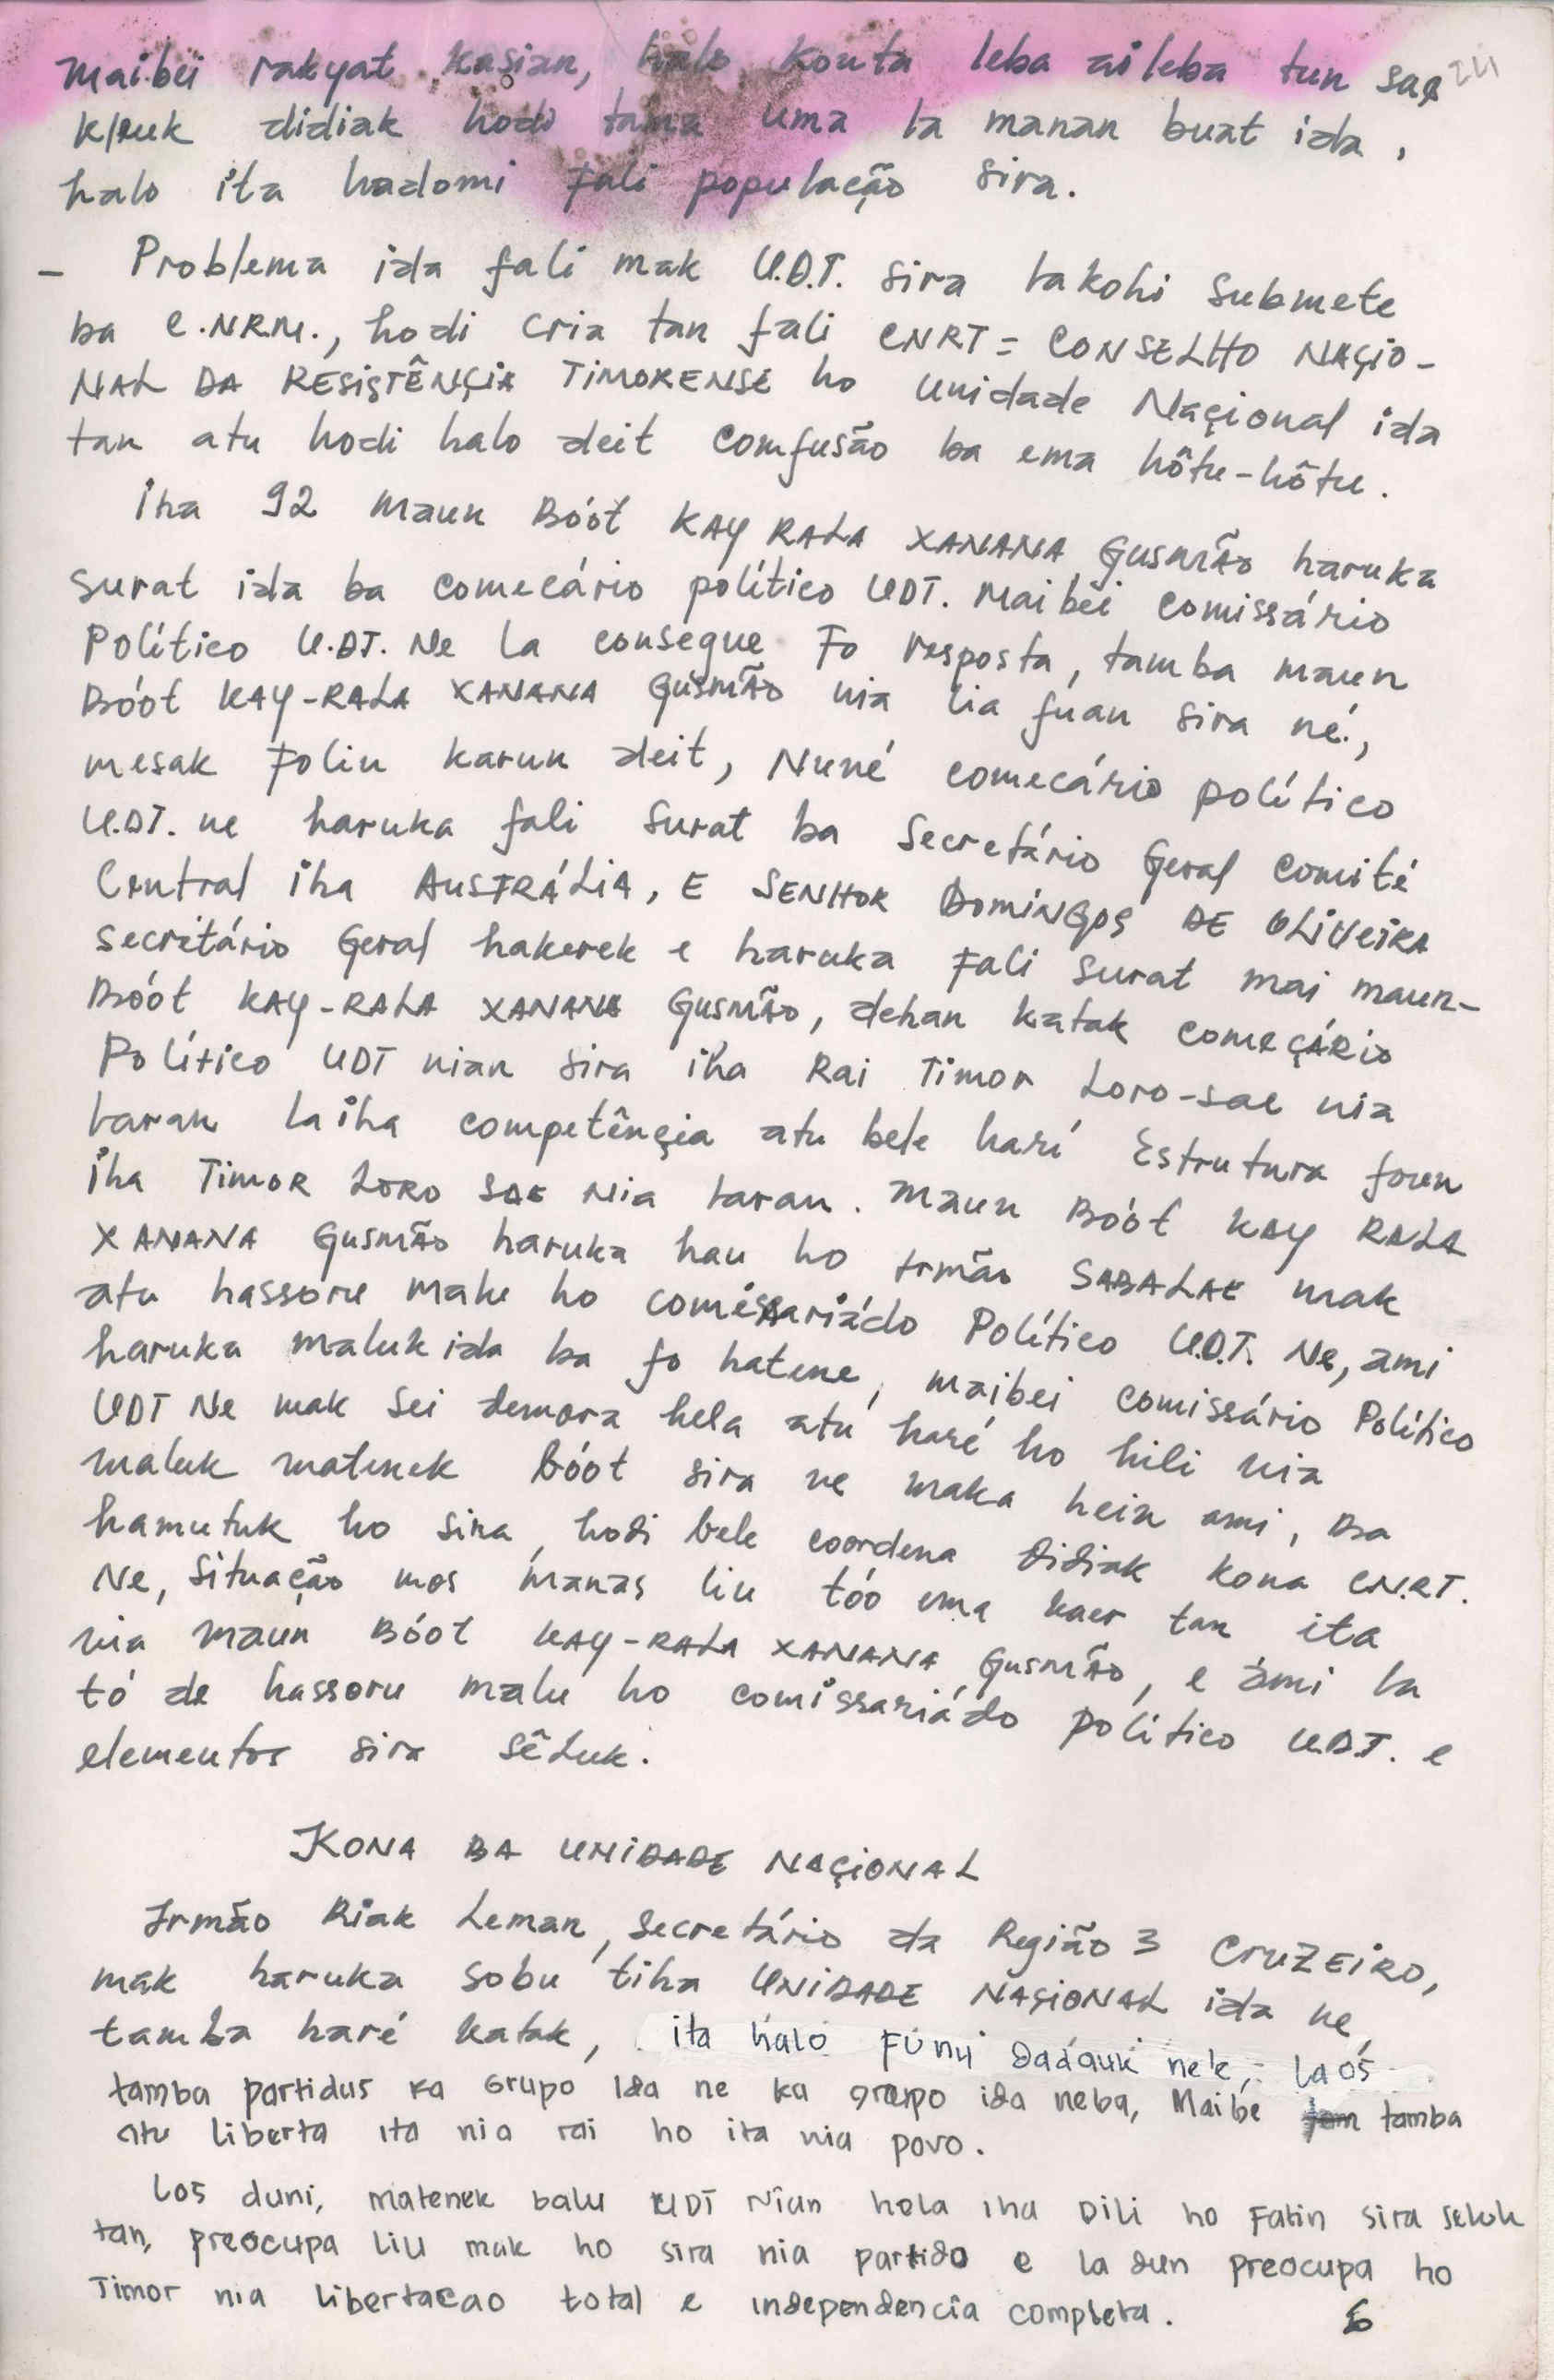 Maibei rakyat kasian, halo konta leba aileba tun sae 24
kleuk didiak hodi tama uma la manan buat ida,
halo ita hadomi fali população sira.
- Problema ida fali mak U.D.T. sira lakohi submete
ba C.NRM., hodi cria tan fali CNRT = CONSELHO NAÇIO-
NAL DA RESISTÊNÇIA TIMORENSE ho Unidade Naçional ida
tan atu hodi halo deit comfusão ba ema hôtu-hôtu.
Iha 92 maun Bóót KAY RALA XANANA GUSMÃO haruka
surat ida ba comecário político UDT. Maibéi comissário
Político U.DT. Ne la consegue Fo resposta, tamba maun
Bóót KAY-RALA XANANA GUSMÃO nia lia fuan sira né,
mesak folin karun deit, Nuné comecário político
U.DT. ne haruka fali surat ba Secretário Geral comité
Central iha AUSTRÁLIA, E SENHOR DOMINGOS DE OLIVEIRA
secretário Geral hakerek e haruka fali surat mai maun-
Bóót KAY-RALA XANANA GUSMÃO, dehan katak comeÇÁRio
Político UDT nian sira iha Rai Timor Loro-sae nia
laran laiha competênçia atu bele harí Estrutura foun
iha TIMOR LORO SAE Nia laran. Maun Bóót KAY RALA
XANANA GUSMÃO haruka hau ho Irmão SABALAE mak
atu hassoru malu ho comissariádo Político U.D.T. Ne, ami
haruka maluk ida ba fo hatene, maibei comissário Político
UDT Ne mak sei demora hela atu haré ho hili nia
maluk matenek bóót sira ne maka hein ami, Ba
hamutuk ho sira, hodi bele coordena didiak kona CN.RT.
Ne, Situação mos manas liu tóo ema kaer tan ita
nia maun Bóót KAY-RALA XANANA GUSMÃO, e ami la
tó de hassoru malu ho comissariádo político U.DT. e
elementos sira sêluk.
KONA BA UNIDADE NAÇIONAL
Irmão Riak Leman, Secretário da Região 3 CRUZEIRO,
mak haruka sobu tiha UNIDADE NAÇIONAL ida ne,
tamba haré katak, ita halo Funu dadauk ne'e, laós
tamba partidus ka Grupo Ida ne ka grupo ida neba, Maibe tamba
atu liberta ita nia rai ho ita nia povo.
Los duni, matenek balu UDT Nian hela iha Dili ho Fatin sira seluk
tan, preocupa liu mak ho sira nia partido e la dun preocupa ho
Timor nia libertacao total e independencia completa. 6